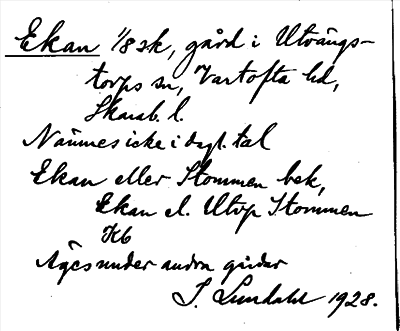 Ekan 1/8 sk, gård i Utvängs-
torps sn, Vartofta hd,
Skarab. l.
Nämnes icke i dagl. tal
Ekan eller Stommen bek,
Ekan el. Utvp Stommen
Kb
Äges under andra gårdar
S. Lundahl 1928.